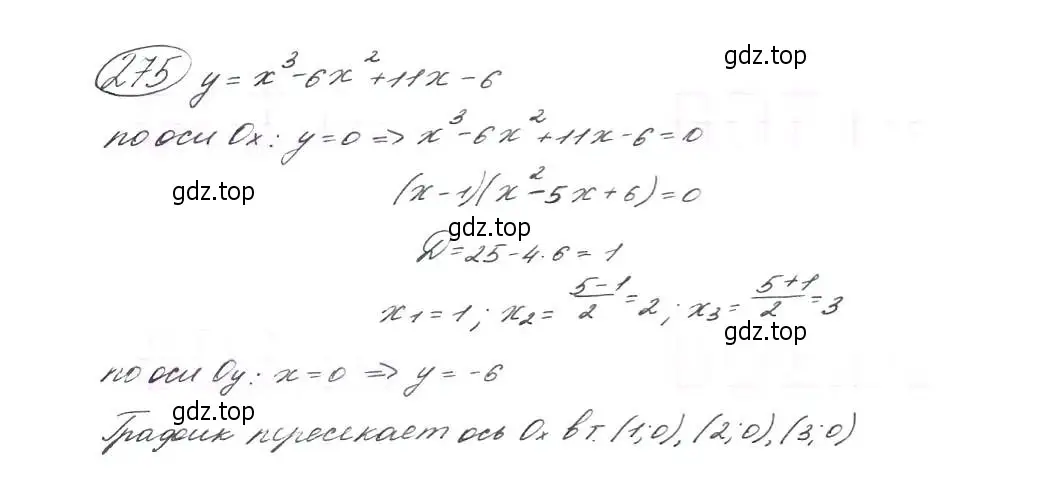 gdz.top
275 y = x³ - 6x² + 11x - 6
по оси Ox: y = 0 => x³ - 6x² + 11x - 6 = 0
gdz.top
(x - 1)(x² - 5x + 6) = 0
gdz.top
D = 25 - 4·6 = 1
x₁ = 1; x₂ = (5-1)/2 = 2; x₃ = (5+1)/2 = 3
gdz.top
по оси Oy: x = 0 => y = -6
gdz.top
График пересекает ось Ox в т. (1;0), (2;0), (3;0)